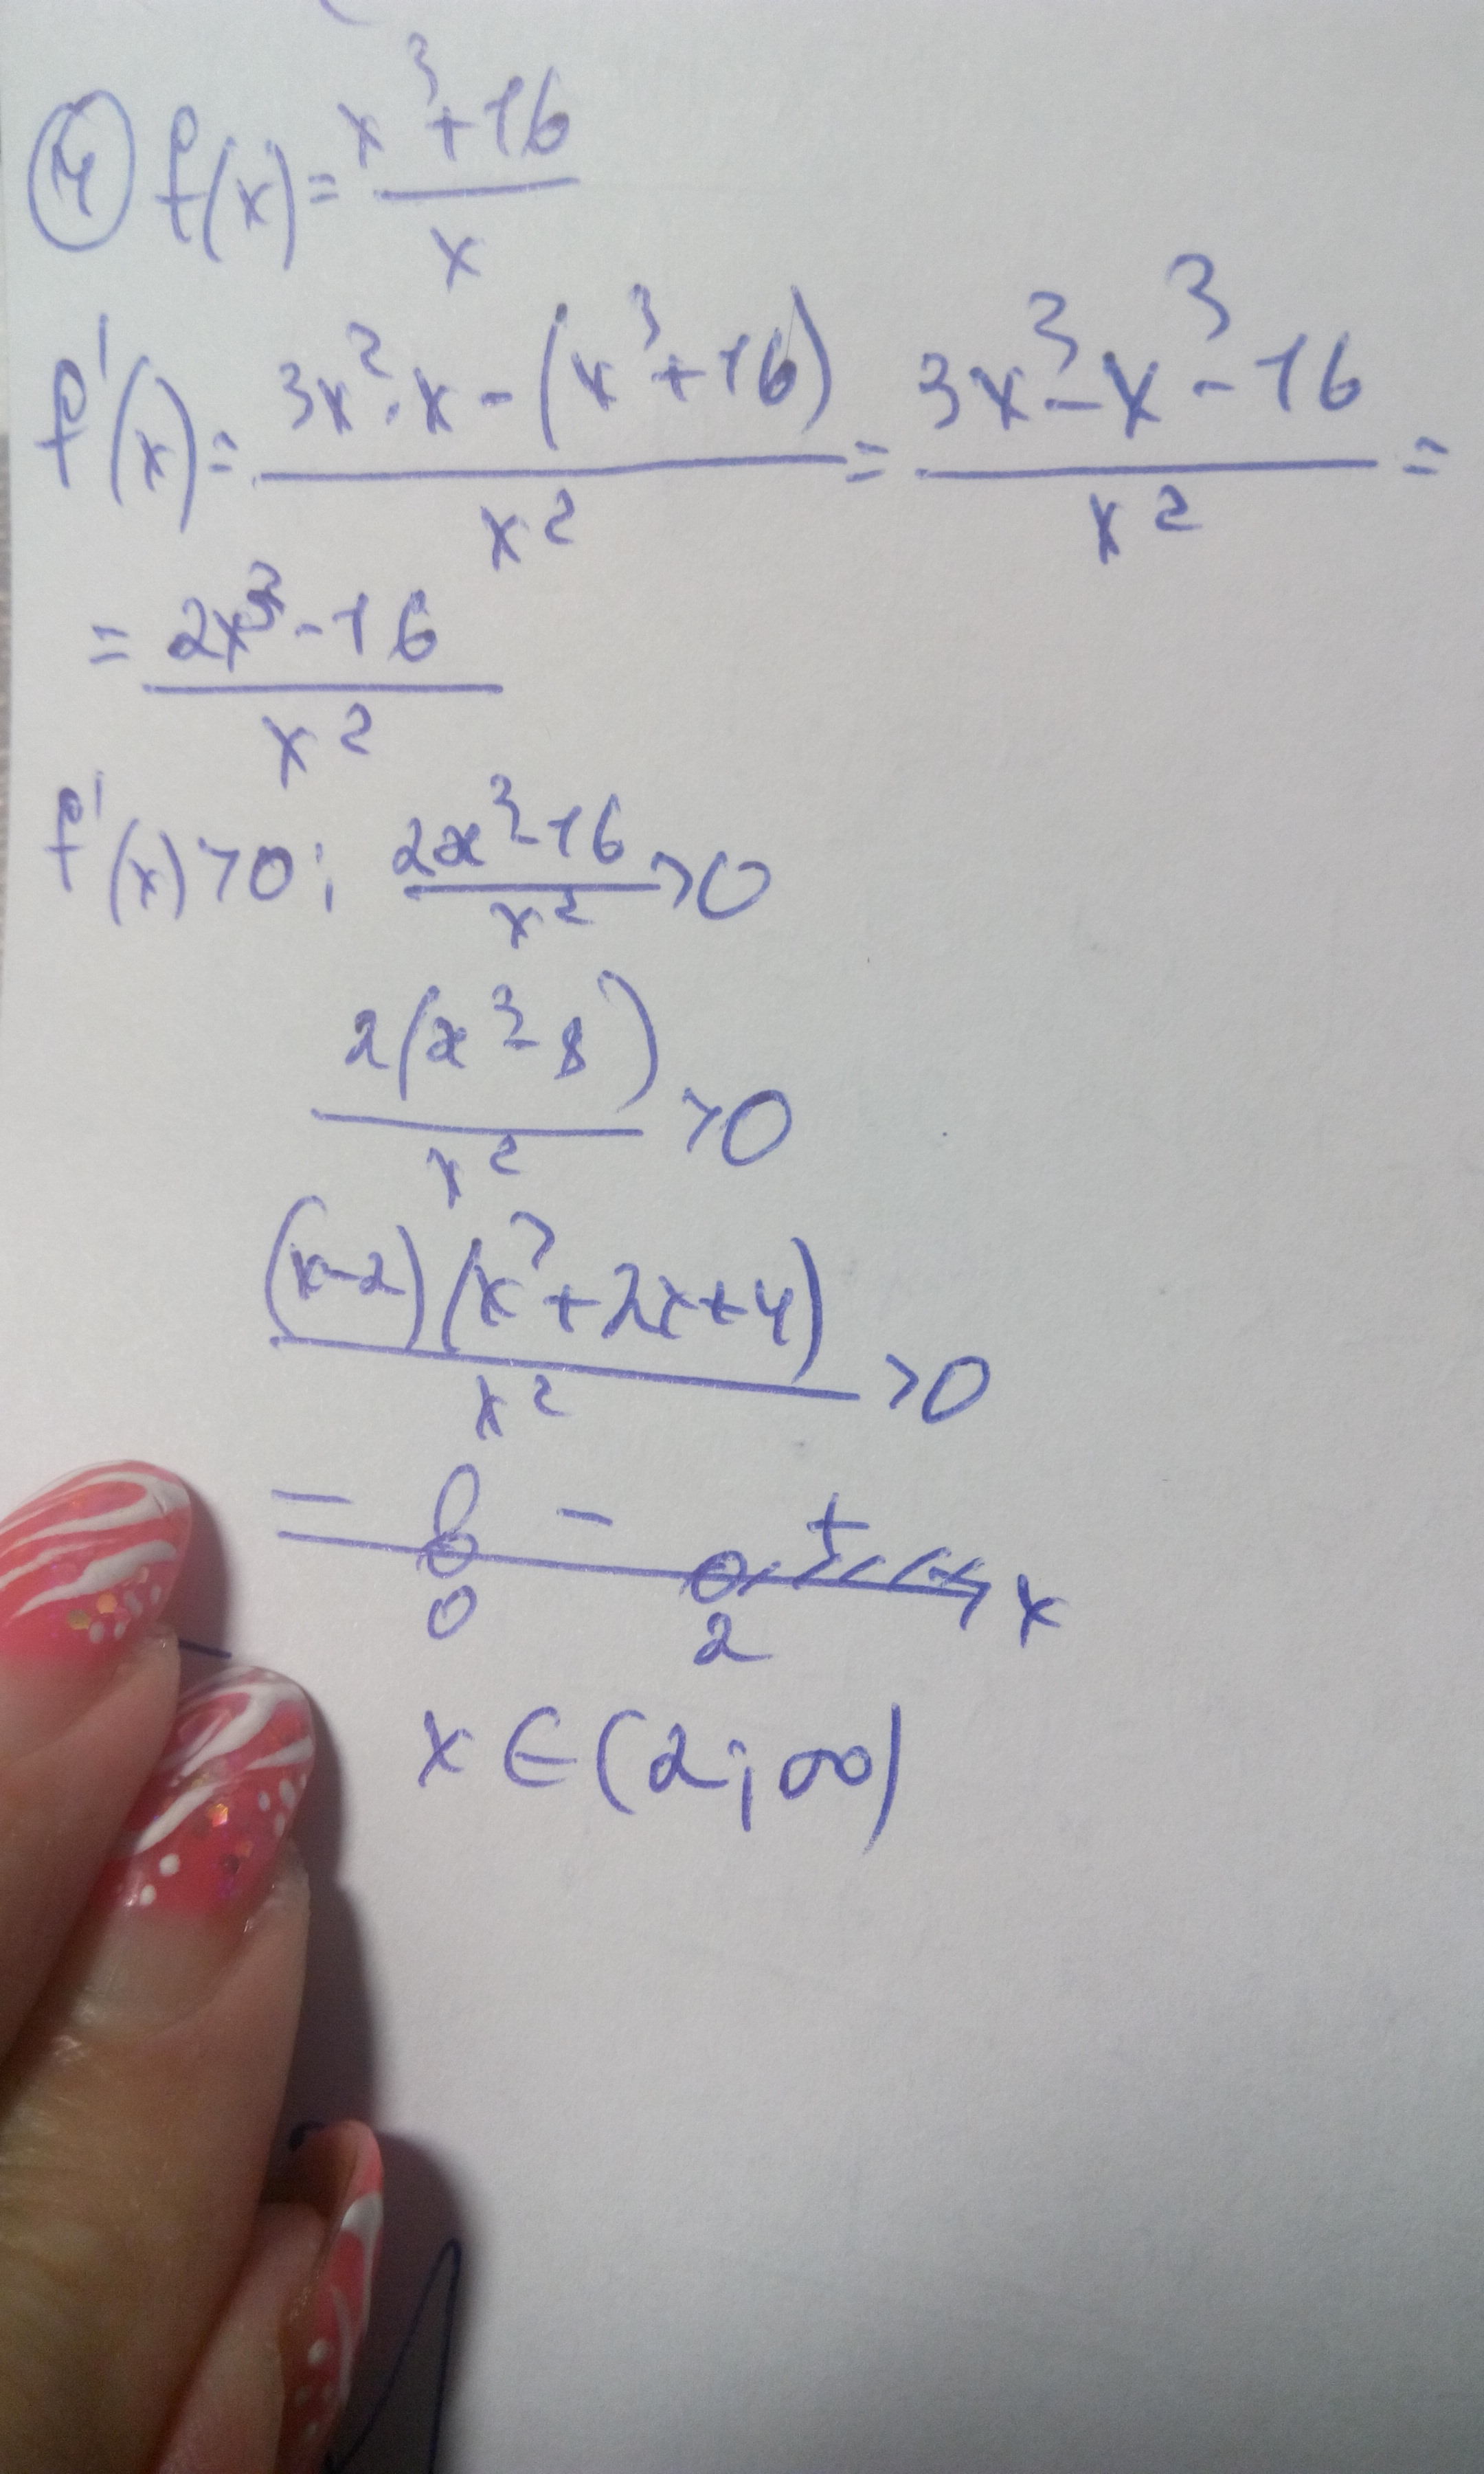 ④ f(x) = (x³+16)/x
f'(x) = (3x²·x-(x³+16))/x² = (3x³-x³-16)/x² =
= (2x³-16)/x²
f'(x)>0; (2x³-16)/x² >0
2(x³-8)/x² >0
(x-2)(x²+2x+4)/x² >0
- - +
0 2 x
x∈(2;∞)